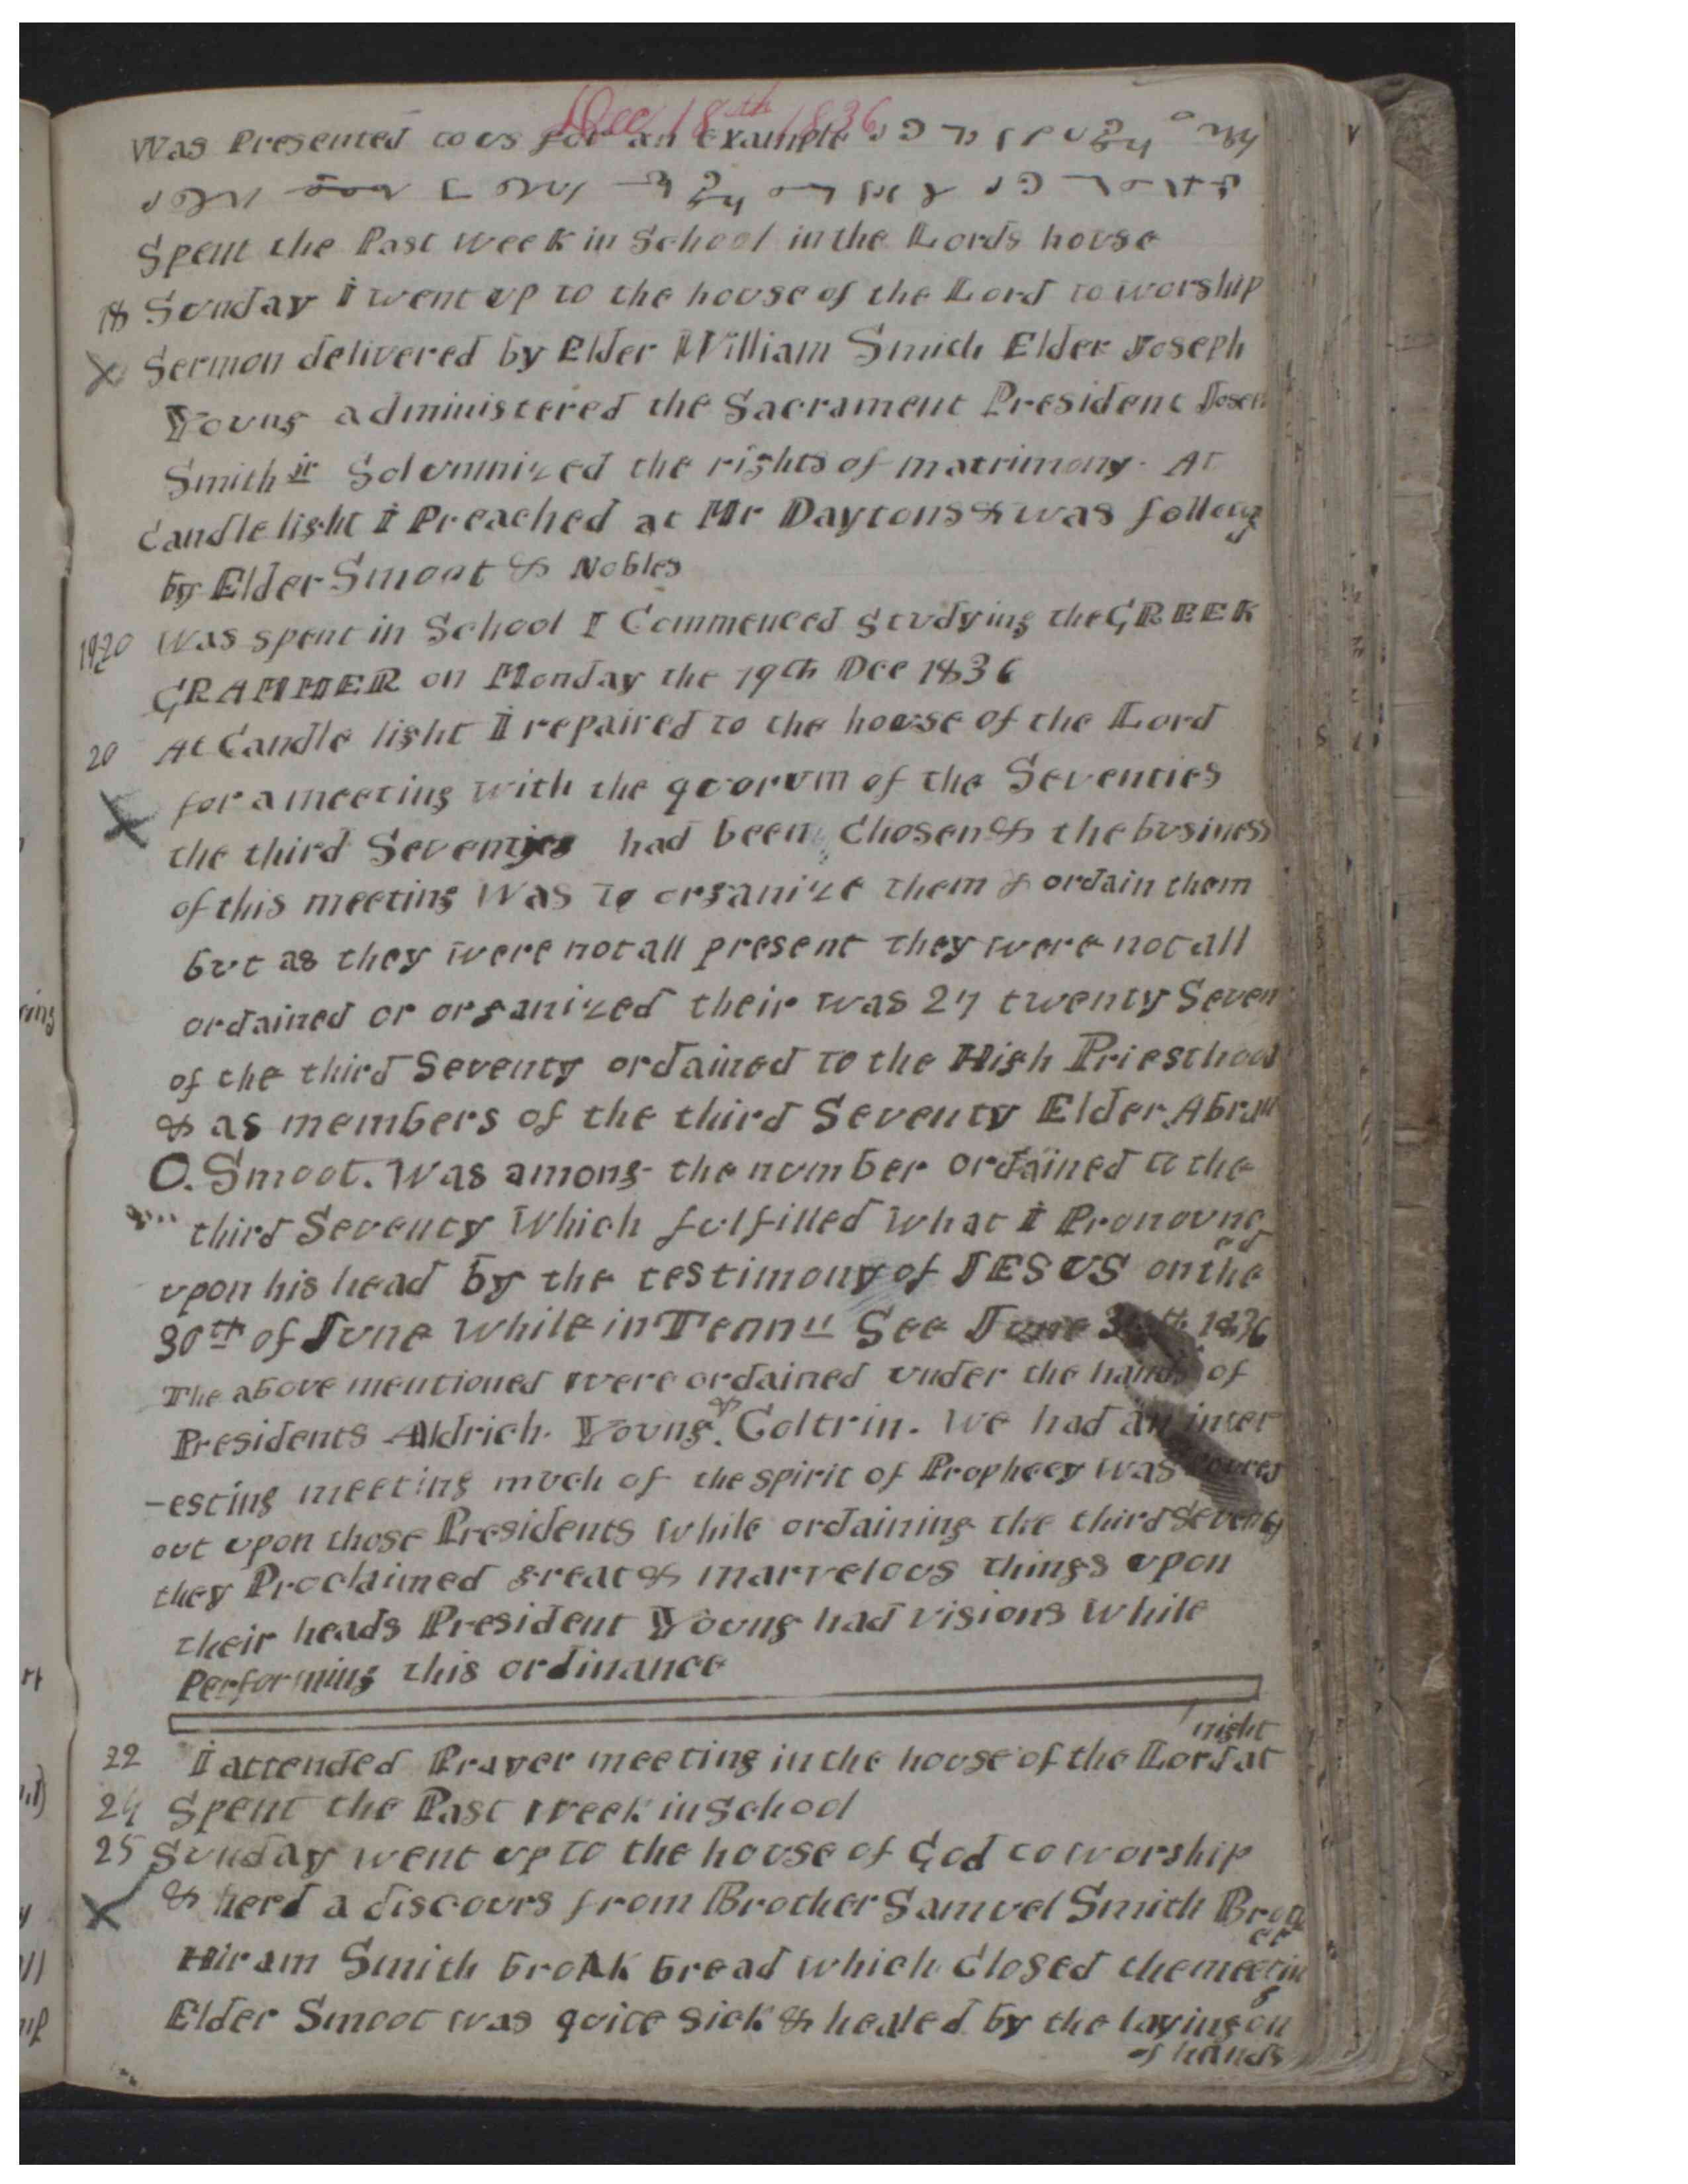 Dec 18th 1836
Was Presented to us for an example
Spent the Past week in School in the Lords house
18 Sunday I went up to the house of the Lord to worship
X Sermon delivered by Elder William Smith Elder Joseph
Young administered the Sacrament President Joseph
Smith jr Solemnized the rights of matrimony. At
Candle light I Preached at Mr Daytons & was followg
by Elder Smoot & Nobles
19-20 Was spent in School I Commenced studying the GREEK
GRAMMER on Monday the 19th Dec 1836
20 At Candle light I repaired to the house of the Lord
X for a meeting with the quorum of the Seventies
the third Seventies had been chosen & the business
of this meeting Was to organize them & ordain them
but as they were not all present they were not all
ordained or organized their was 27 twenty Seven
of the third Seventy ordained to the High Priesthood
& as members of the third Seventy Elder Abram
O. Smoot. Was among the number ordained to the
third Seventy Which fulfilled what I Pronounced
upon his head by the testimony of JESUS on the
30th of June While in Tenn" See June 30th 1836
The above mentioned were ordained under the hands of
Presidents Aldrich. Young. & Coltrin. We had an inter
-esting meeting much of the spirit of Prophecy was poured
out upon those Presidents While ordaining the third Seventy
they Proclaimed great & marvelous things upon
their heads President Young had visions While
Performing this ordinance
22 I attended Prayer meeting in the house of the Lord at night
24 Spent the Past week in school
25 Sunday went up to the house of God to worship
X & herd a discours from Brother Samuel Smith Brother
Hiram Smith broak bread which closed the meeting
Elder Smoot was quite sick & healed by the laying on
of hands